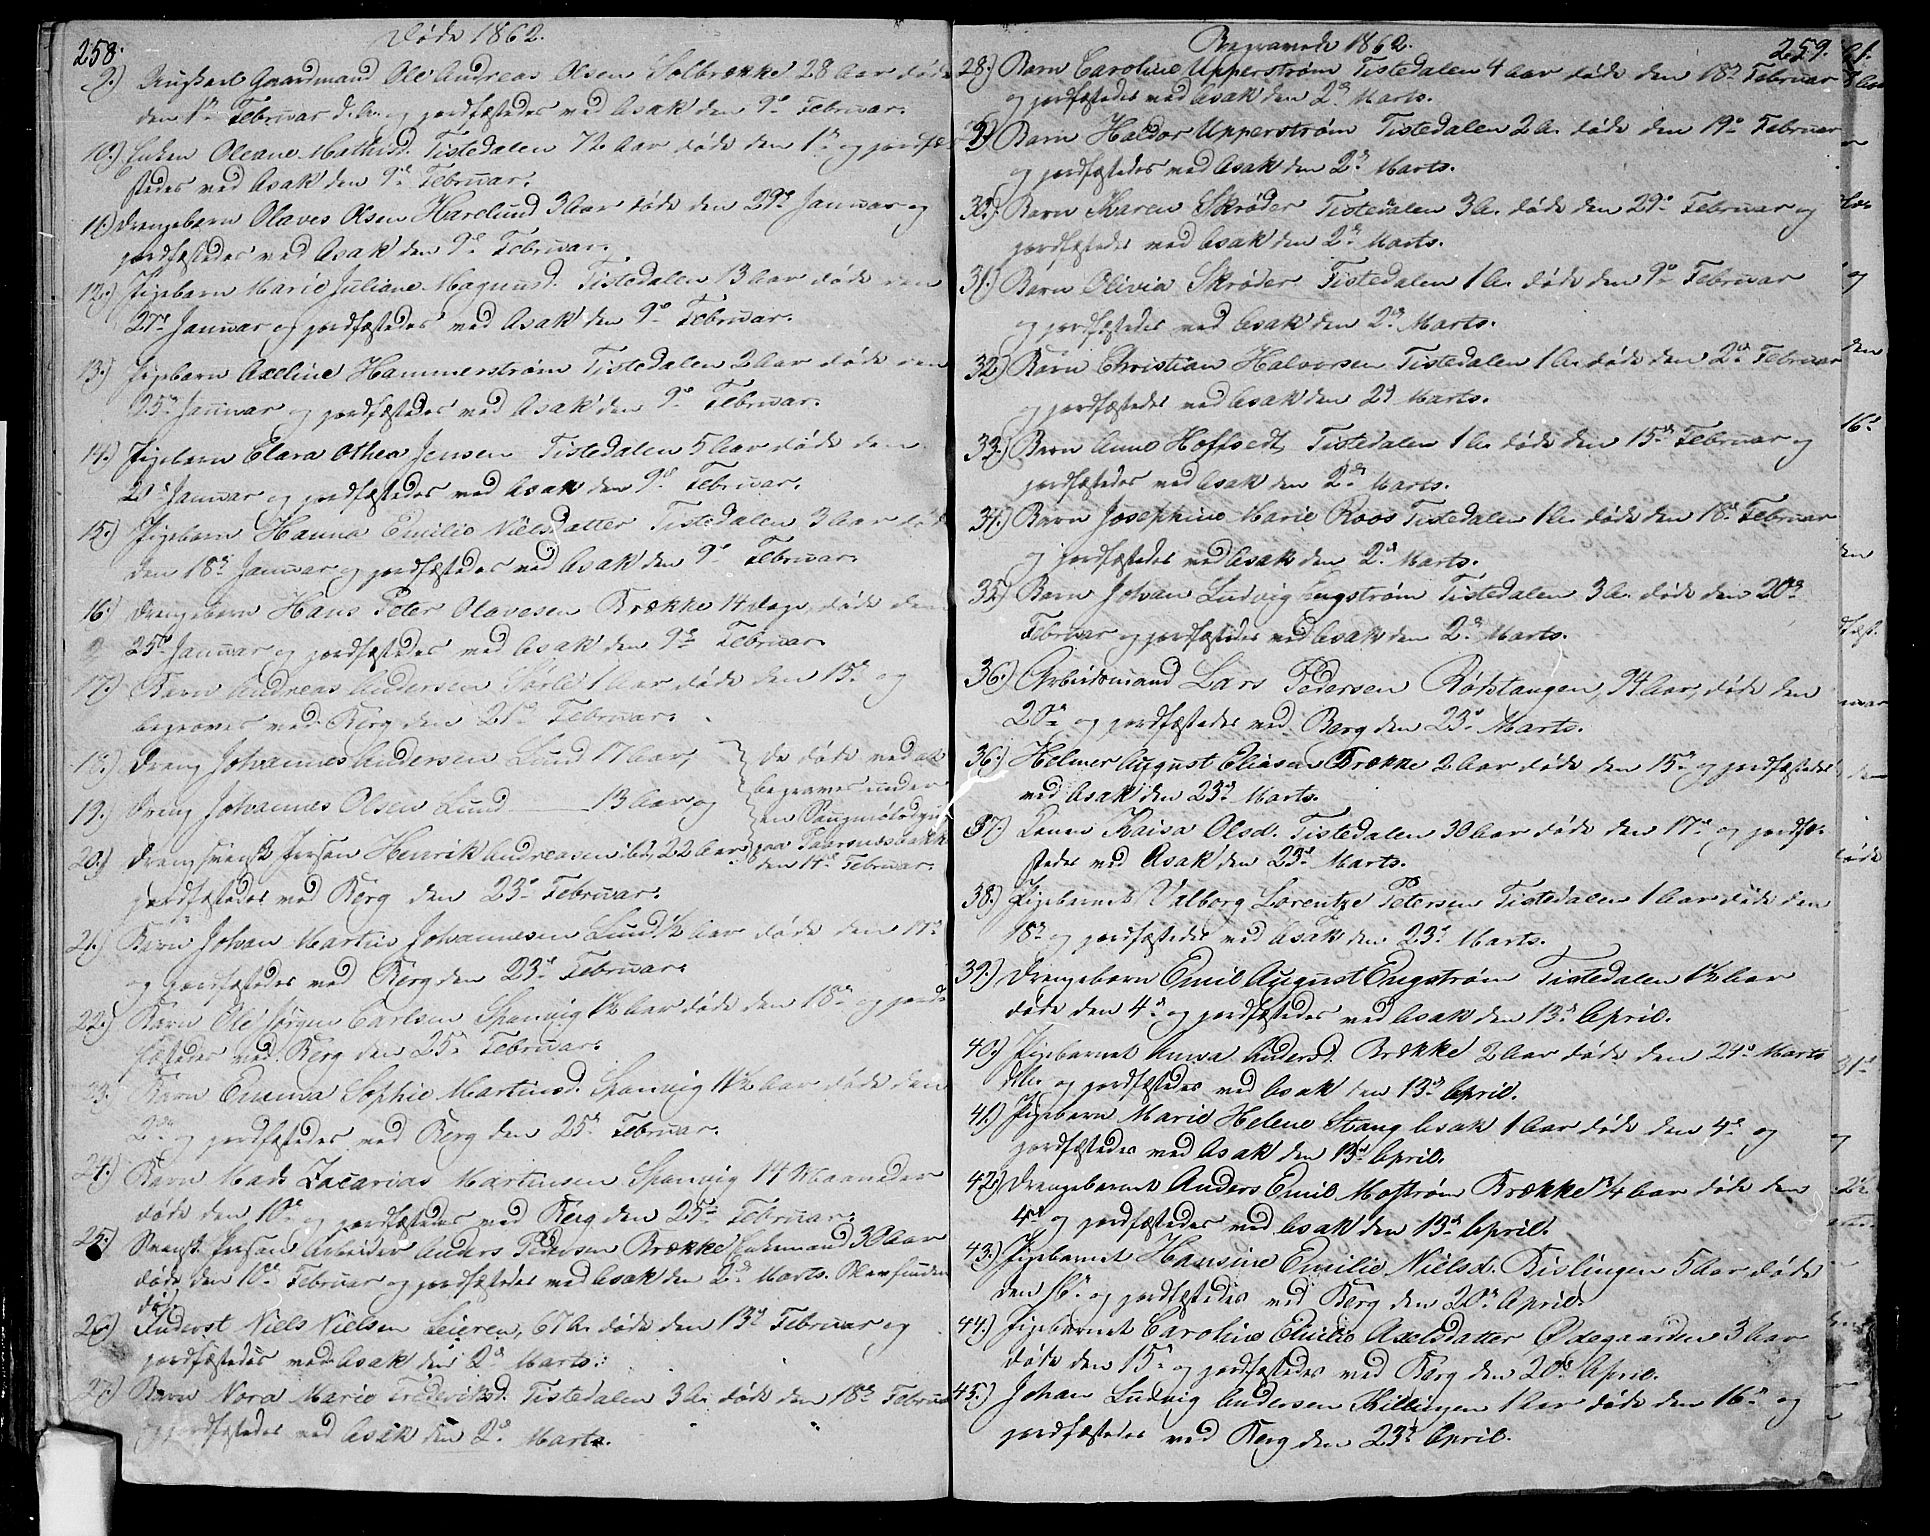 258.
Døde 1862.
9.) Gaardmand Ole Andreas Olsen Solbrække 28 Aar døde
den 1ste Februar d. A. og jordfæstedes ved Asak den 9de Februar.
10.) Enken Oleane Mathisd. Tistedalen 72 Aar døde den 1ste og jordfæ-
stedes ved Asak den 9de Februar.
11.) Drengebarn Olaves Olsen Harelund 3 Aar døde den 29de Januar og
jordfæstedes ved Asak den 9de Februar.
12.) Pigebarn Marie Juliane Magnusd. Tistedalen 13 Aar døde den
27de Januar og jordfæstedes ved Asak den 9de Februar.
13.) Pigebarn Axeline Hammerstrøm Tistedalen 2 Aar døde den
25de Januar og jordfæstedes ved Asak den 9de Februar.
14.) Pigebarn Clara Othea Jensen Tistedalen 5 Aar døde den
20de Januar og jordfæstedes ved Asak den 9de Februar.
15.) Pigebarn Hanna Emilie Nielsdatter Tistedalen 3 Aar døde
den 18de Januar og jordfæstedes ved Asak den 9de Februar.
16.) Drengebarn Hans Peter Olavesen Brække 14 dage, døde den
25de Januar og jordfæstedes ved Asak den 9de Februar.
17.) Barn Andreas Andersen Sørlie 1 Aar døde den 15de og
begraves ved Berg den 21de Februar.
18.) Dreng Johannes Andersen Lund 17 Aar, de døde ved at
19.) Dreng Johannes Olsen Lund 13 Aar og begraves under
en
20.) Dreng svensk Person Henrik Andreasen ibid, 22 Aar paa
den 14de Februar.
jordfæstedes ved Berg den 23de Februar.
21.) Barn Johan Martin Johannesen Lund ½ Aar døde den 17de
og jordfæstedes ved Berg den 23de Februar.
22.) Barn Ole Jørgen Carlsen Sponvig 1½ Aar døde den 18de og jord-
fæstedes ved Berg den 25de Februar.
23.) Barn Emma Sophie Martinsd. Sponvig Aar døde den
2den og jordfæstedes ved Berg den 25de Februar.
24.) Barn Mads Zacarias Martinsen Sponvig 14 Maaneder
døde den 10de og jordfæstedes ved Berg den 25de Februar.
25.) Svensk Person Arbeider Anders Pedersen Brække Enkemand 30 Aar
døde den 10de Februar og jordfæstedes ved Asak den 2den Marts.
død.
26.) Inderst Niels Nielsen Leieren, 67 A. døde den 13de Februar og
jordfæstedes ved Asak den 2den Marts.
27.) Barn Nora Marie Frederiksd. Tistedalen 3 A. døde den 18de Februar
og jordfæstedes ved Asak den 2den Marts.
Begravede 1862.
259.
28.) Barn Caroline Upperstrøm Tistedalen 4 Aar døde den 18de Februar
og jordfæstedes ved Asak den 2den Marts.
29.) Barn Haldor Upperstrøm Tistedalen 2 A. døde den 19de Februar
og jordfæstedes ved Asak den 2den Marts.
30.) Barn Karen Skrøder Tistedalen 3 A. døde den 29de Februar og
jordfæstedes ved Asak den 2den Marts.
31.) Barn Olivia Skrøder Tistedalen 1 A. døde den 9de Februar
og jordfæstedes ved Asak den 2den Marts.
32.) Barn Christian Halvorsen Tistedalen 1 A. døde den 2den Februar
og jordfæstedes ved Asak den 2d Marts.
33.) Barn Anne Hoffsedt Tistedalen 1 A. døde den 15de Februar og
jordfæstedes ved Asak den 2den Marts.
34.) Barn Josephine Marie Roos Tistedalen 1 A. døde den 18de Februar
og jordfæstedes ved Asak den 2den Marts.
35.) Barn Johan Ludvig Engstrøm Tistedalen 3 A. døde den 20de
Februar og jordfæstedes ved Asak den 2den Marts.
36.) Arbeidsmand Lars Pedersen Rødstangen, 94 Aar, døde den
20de og jordfæstedes ved Berg den 23de Marts.
36.) Helmer August Eliasen Brække 2 Aar døde den 15de og jordfæstedes
ved Asak den 23de Marts.
37.) Konen Kaisa Olsd. Tistedalen 30 Aar døde den 17de og jordfæ-
stedes ved Asak den 23de Marts.
38.) Pigebarnet Valborg Lorentze Petersen Tistedalen 1 Aar døde den
18de og jordfæstedes ved Asak den 23de Marts.
39.) Drengebarn Emil August Engstrøm Tistedalen 1½ Aar
døde den 4de og jordfæstedes ved Asak den 13de April.
40.) Pigebarnet Anna Andersd. Brække 2 Aar døde den 24de Marts
og jordfæstedes ved Asak den 13de April.
41.) Pigebarn Marie Helene Stang Asak 1 Aar døde den 4de og
jordfæstedes ved Asak den 13de April.
42.) Drengebarnet Anders Emil Mostrøm Brække ¾ Aar døde den
4de og jordfæstedes ved Asak den 13de April.
43.) Pigebarnet Hansine Emilie Nielsd. Bislingen 5 Aar døde
den 16de og jordfæstedes ved Berg den 20de April.
44.) Pigebarnet Caroline Emilie Axelsdatter Ødegaarden 3 Aar
døde den 15de og jordfæstedes ved Berg den 20de April.
45.) Johan Ludvig Andersen Killingen 1 Aar døde den 16de og
jordfæstedes ved Berg den 23de April.